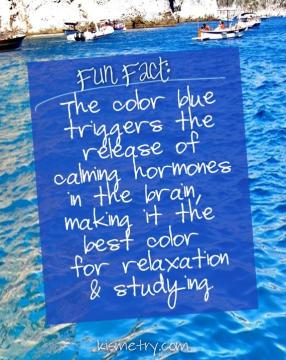 Fun Fact:
The color blue
triggers the
release of
calming hormones
in the brain,
making it the
best color
for relaxation
& studying
kismetry.com